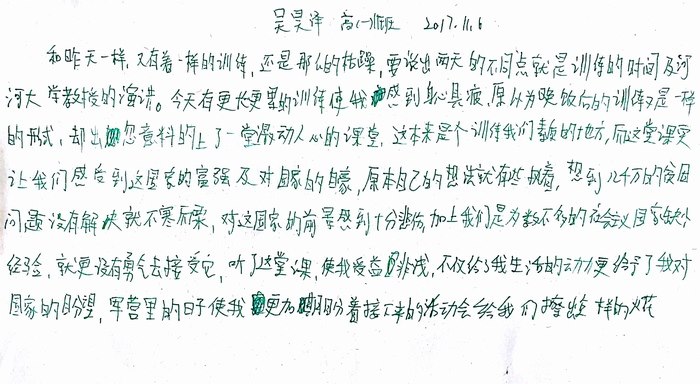 吴昊泽 高(一)1班 2017.11.6
和昨天一样,又有着一样的训练,还是那么的枯躁,要说出两天的不同点就是训练的时间及河
河大学教授的演讲。今天有更长更累的训练使我感到身心具疲,原以为晚饭后的训练又是一样
的形式,却出忽意料的上了一堂激动人心的课堂,这本来是个训练我们素质的地方,而这堂课实
让我们感受到这国家的富强及对国家的自豪,原本自己的想法就有些执着,想到几千万的贫困
问题没有解决就不寒而栗,对这国家的前景感到十分悲伤,加上我们是为数不多的社会主义国家缺少
经验,就更没有勇气去接受它,听了这堂课,使我受益非浅,不仅给了我生活的动力更给予了我对
国家的盼望,军营里的日子使我更加期盼着接下来的活动会给我们擦出 样的火花